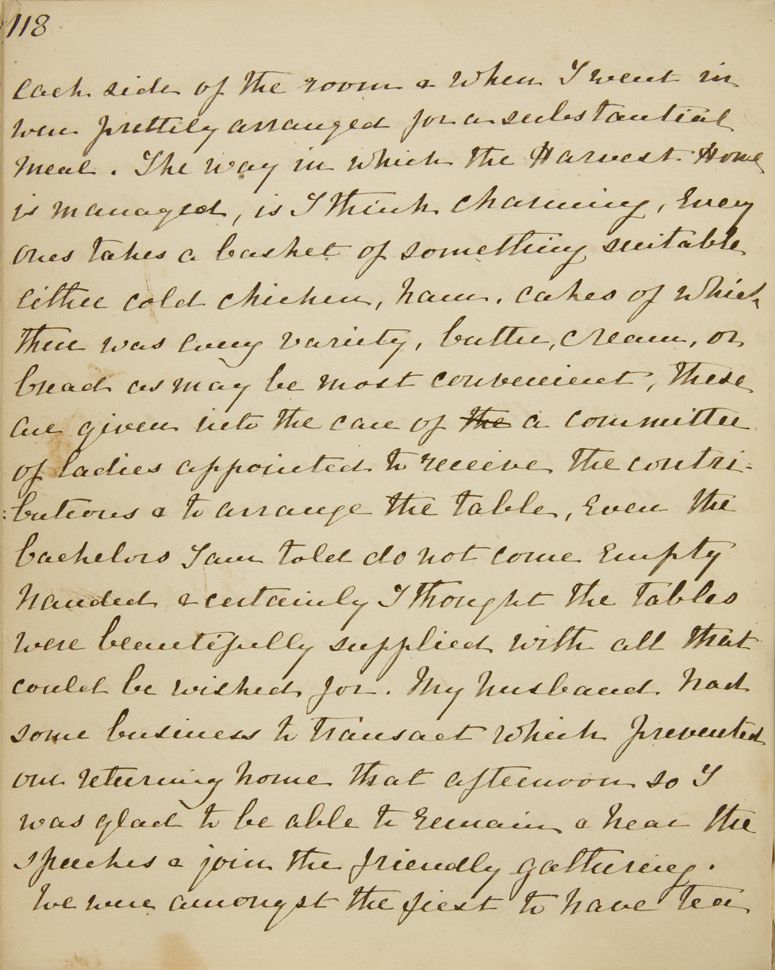 118
each side of the room & when I went in
were prettily arranged for a substantial
meal. The way in which the Harvest Home
is managed, is I think charming, Every
ones takes a basket of something suitable
either cold chicken, ham, cakes of which
there was every variety, butter, cream, or
bread as may be most convenient, these
are given into the care of ~~the~~ a committee
of ladies appointed to receive the contri:
:butions & to arrange the table, Even the
bachelors I am told do not come Empty
handed & certainly I thought the tables
were beautifully supplied with all that
could be wished for. My husband had
some business to transact which prevented
our returning home that afternoon so I
was glad to be able to remain & hear the
speeches & join the friendly gathering.
We were amongst the first to have tea